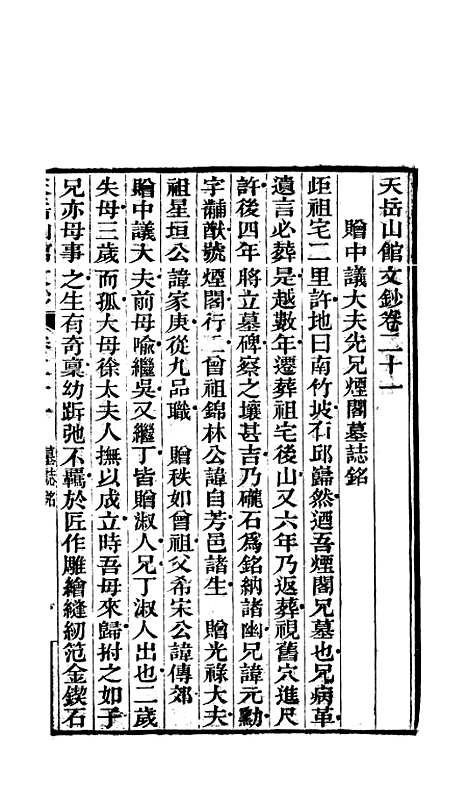 天岳山館文鈔卷二十一
贈中議大夫先兄煙閣墓誌銘
歫祖宅二里許地曰南竹坡石邱巋然迺吾煙閣兄墓也兄病革
遺言必葬是越數年遷葬祖宅後山又六年乃返葬視舊穴進尺
許後四年將立墓碑察之壤甚吉乃礲石爲銘納諸幽兄諱元勳
字黼猷號煙閣行二曾祖錦林公諱自芳邑諸生　贈光祿大夫
祖星垣公諱家庚從九品職　贈秩如曾祖父希宋公諱傳郊
贈中議大夫前母喻繼吳又繼丁皆贈淑人兄丁淑人出也二歲
失母三歲而孤大母徐太夫人撫以成立時吾母來歸拊之如子
兄亦母事之生有奇稟幼跅弛不羈於匠作雕繪縫紉范金鍥石
墓誌銘